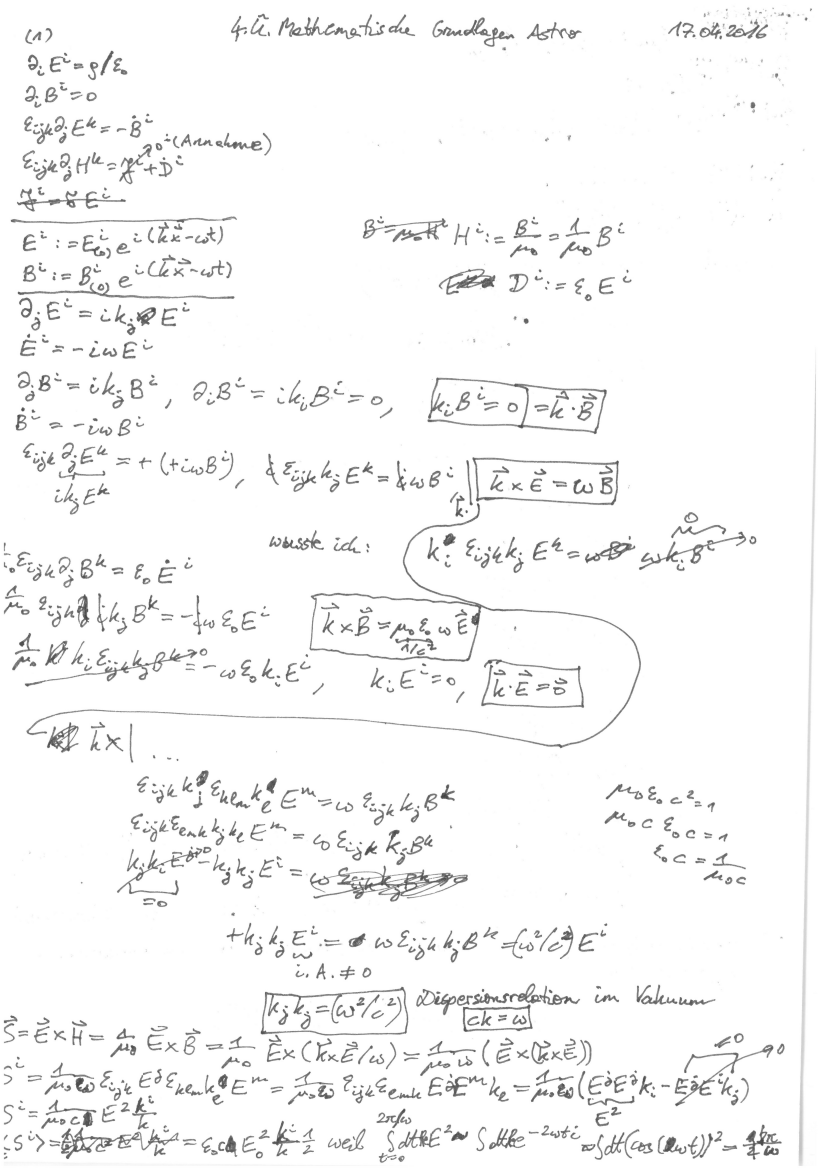 (1) 4.Ü. Mathematische Grundlagen Astro 17.04.2016
∂_i E^i = ρ/ε_0
∂_i B^i = 0
ε_ijk ∂_j E^k = -Ḃ^i
ε_ijk ∂_j H^k = j^i + Ḋ^i → 0 (Annahme)
E^i := E^i_(0) e^{i(k⃗x⃗-ωt)}
H^i := B^i/μ_0 = 1/μ_0 B^i
B^i := B^i_(0) e^{i(k⃗x⃗-ωt)}
D^i := ε_0 E^i
∂_j E^i = i k_j E^i
Ė^i = -iωE^i
∂_j B^i = i k_j B^i , ∂_i B^i = i k_i B^i = 0, k_i B^i = 0 = k⃗·B⃗
Ḃ^i = -iωB^i
ε_ijk ∂_j E^k = +(+iωB^i), i ε_ijk k_j E^k = iωB^i k⃗×E⃗ = ωB⃗
i k_j E^k
k⃗·
wusste ich: k_i ε_ijk k_j E^k = ωk_i B^i → 0
ε_ijk ∂_j B^k = ε_0 Ė^i
1/μ_0 ε_ijk i k_j B^k = -iωε_0 E^i k⃗×B⃗ = μ_0 ε_0 ω E⃗
1/c²
1/μ_0 k_i ε_ijk k_j B^k → 0 = -ωε_0 k_i E^i, k_i E^i = 0, k⃗·E⃗ = 0⃗
k⃗× | ...
ε_ijk k_j ε_klm k_l E^m = ω ε_ijk k_j B^k
μ_0 ε_0 c² = 1
ε_ijk ε_lmk k_j k_l E^m = ω ε_ijk k_j B^k
μ_0 c ε_0 c = 1
k_j k_i E^j → 0 - k_j k_j E^i =
ε_0 c = 1/μ_0 c
=0
+k_j k_j E^i = ω ε_ijk k_j B^k = (ω²/c²) E^i
i. A. ≠ 0
k_j k_j = (ω²/c²) Dispersionsrelation im Vakuum
ck = ω
S⃗ = E⃗×H⃗ = 1/μ_0 E⃗×B⃗ = 1/μ_0 E⃗×(k⃗×E⃗/ω) = 1/μ_0ω (E⃗×(k⃗×E⃗))
S^i = 1/μ_0ω ε_ijk E^j ε_klm k_l E^m = 1/μ_0ω ε_ijk ε_lmk E^j E^m k_l = 1/μ_0ω (E^j E^j k_i - E^j E^i k_j) =0 → 0
E²
S^i = 1/μ_0c E² k^i/k
<S^i> = ε_0 c E_0² k^i/k 1/2 weil